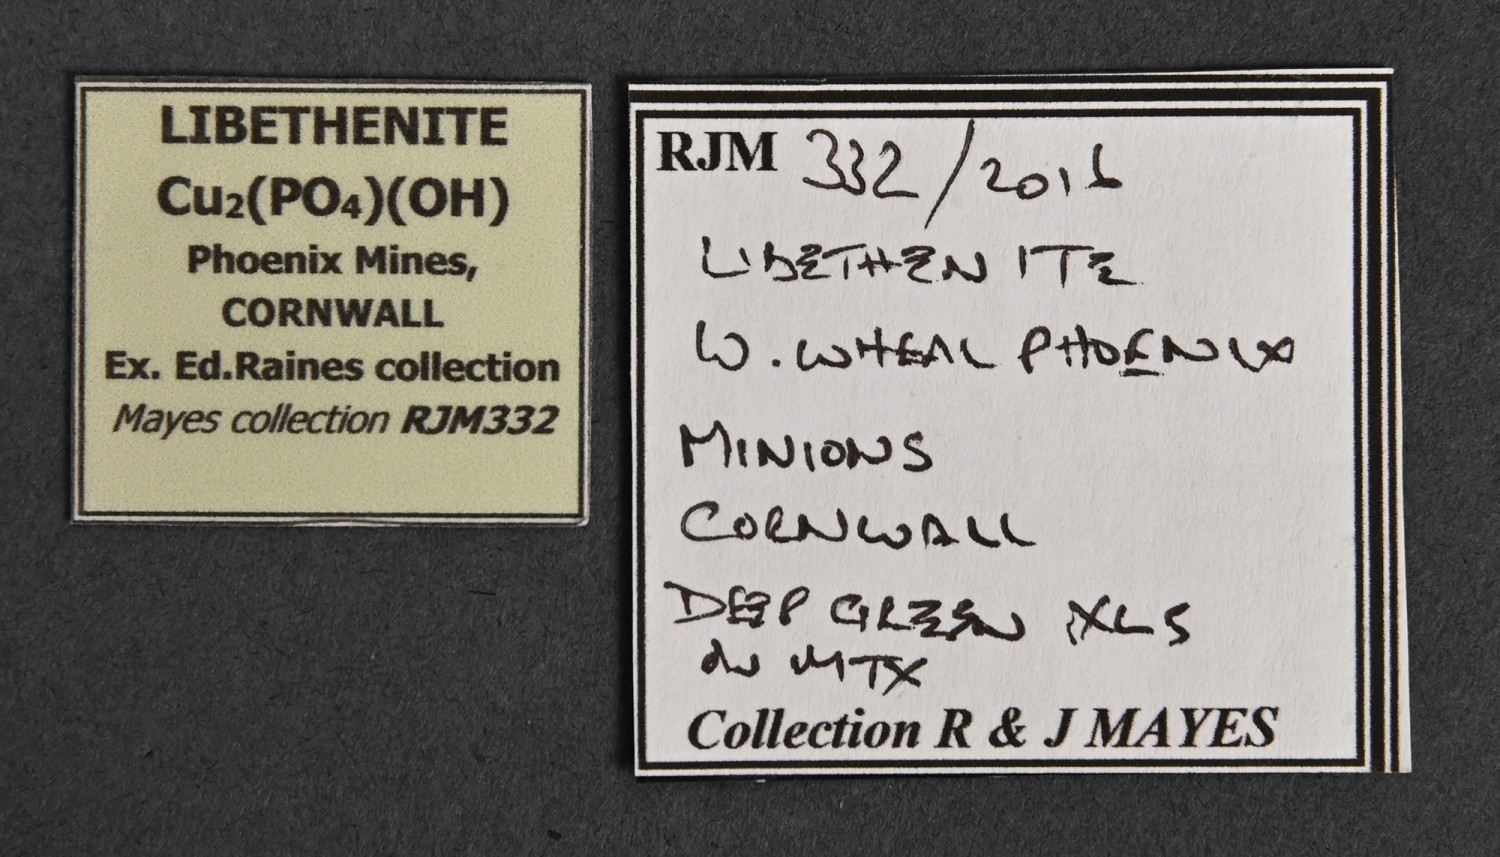 LIBETHENITE
Cu₂(PO₄)(OH)
Phoenix Mines,
CORNWALL
Ex. Ed.Raines collection
Mayes collection RJM332
RJM 332/2016
LIBETHENITE
W. WHEAL PHOENIX
MINIONS
CORNWALL
DEEP GREEN XLS
ON MTX
Collection R & J MAYES